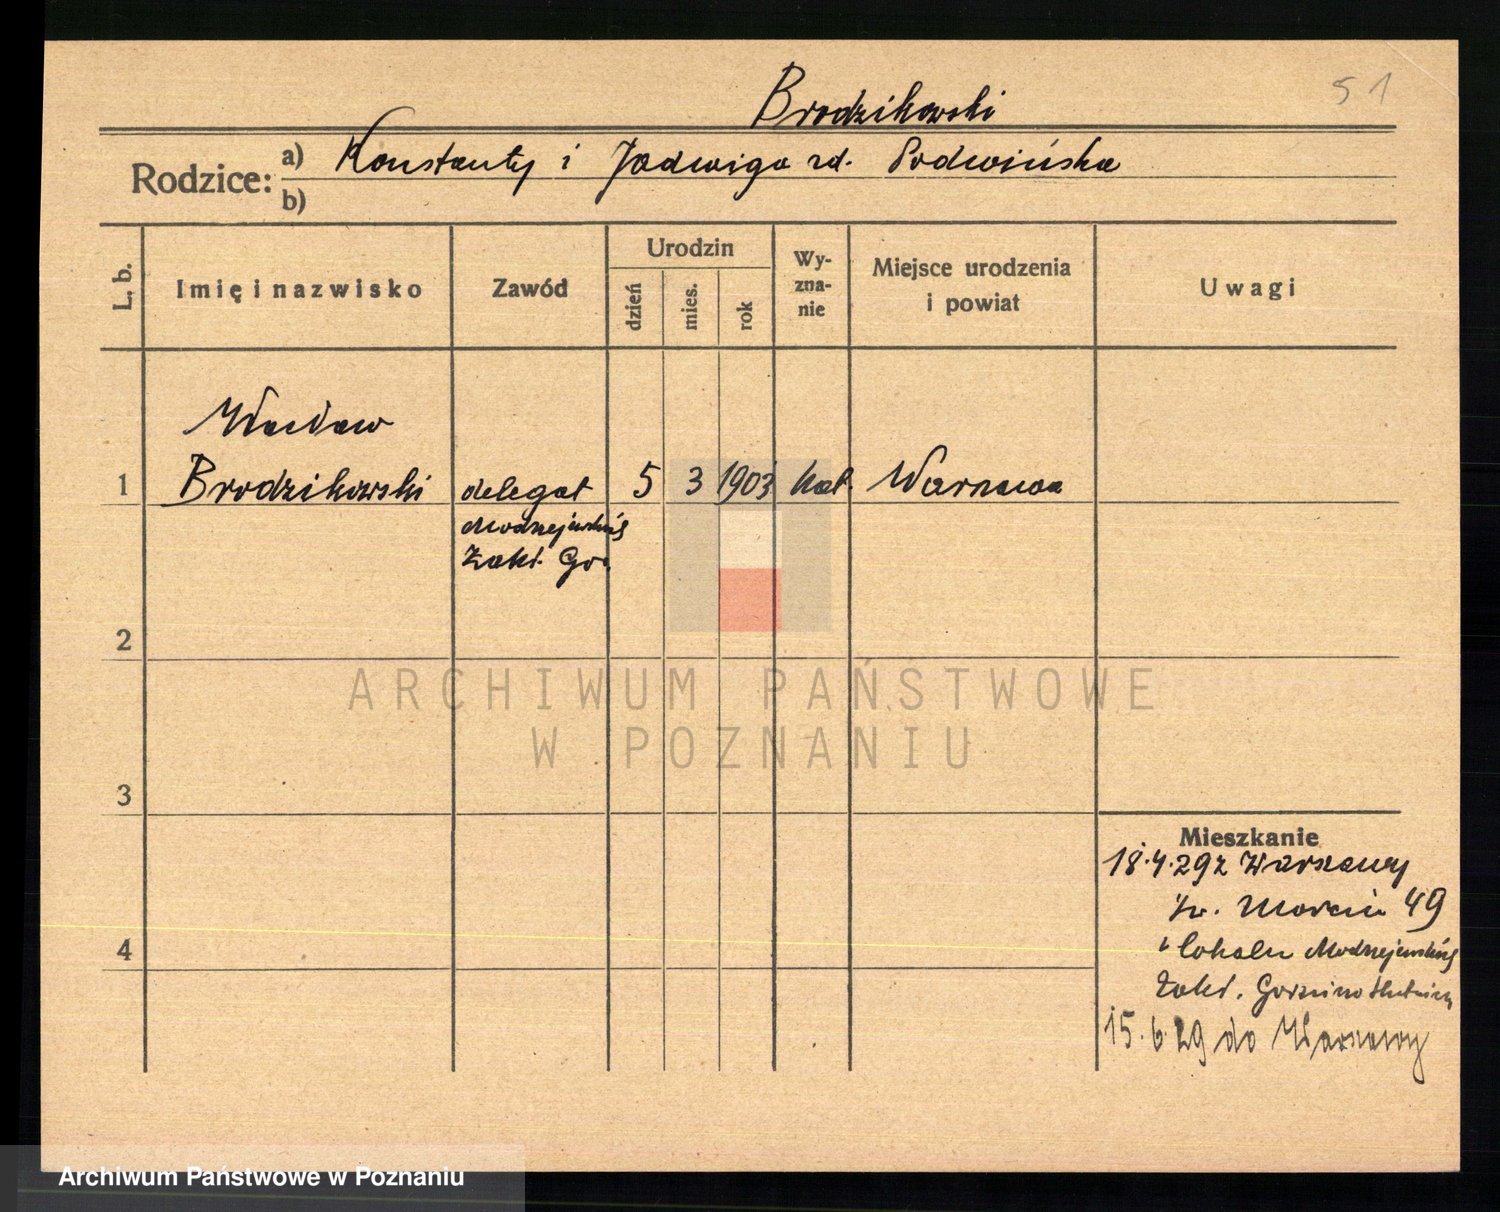 51
Brodzikowski
Rodzice: a) Konstanty i Jadwiga zd. Podwińska
b)
L. b.
Imię i nazwisko
Zawód
Urodzin
dzień
mies.
rok
Wy-
zna-
nie
Miejsce urodzenia
i powiat
Uwagi
Wacław
1 Brodzikowski delegat 5 3 1903 kat. Warszawa
Modrzejewskich
Zakł. Gór.
2
ARCHIWUM PAŃSTWOWE
W POZNANIU
3
Mieszkanie
18.4.29 z Warszawy
św. Marcin 49
lokalu Modrzejewskich
Zakł. Górniczo Hutniczych
4
15.6.29 do Warszawy
Archiwum Państwowe w Poznaniu